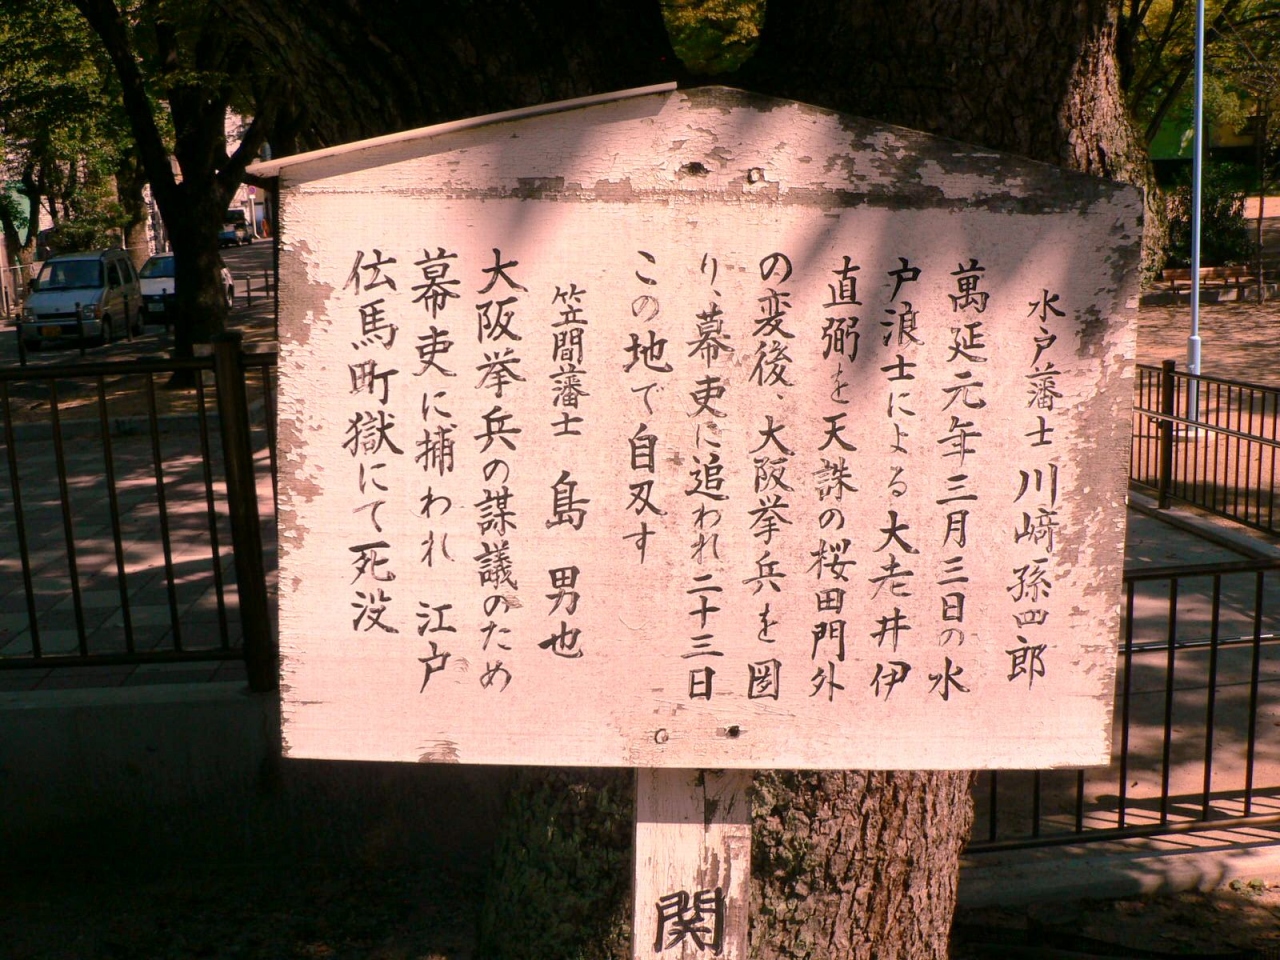 水戸藩士 川﨑孫四郎
萬延元年三月三日の水
戸浪士による大老井伊
直弼を天誅の桜田門外
の変後、大阪挙兵を図
り、幕吏に追われ二十三日
この地で自刃す
笠間藩士 島男也
大阪挙兵の謀議のため
幕吏に捕われ 江戸
伝馬町獄にて死没
関